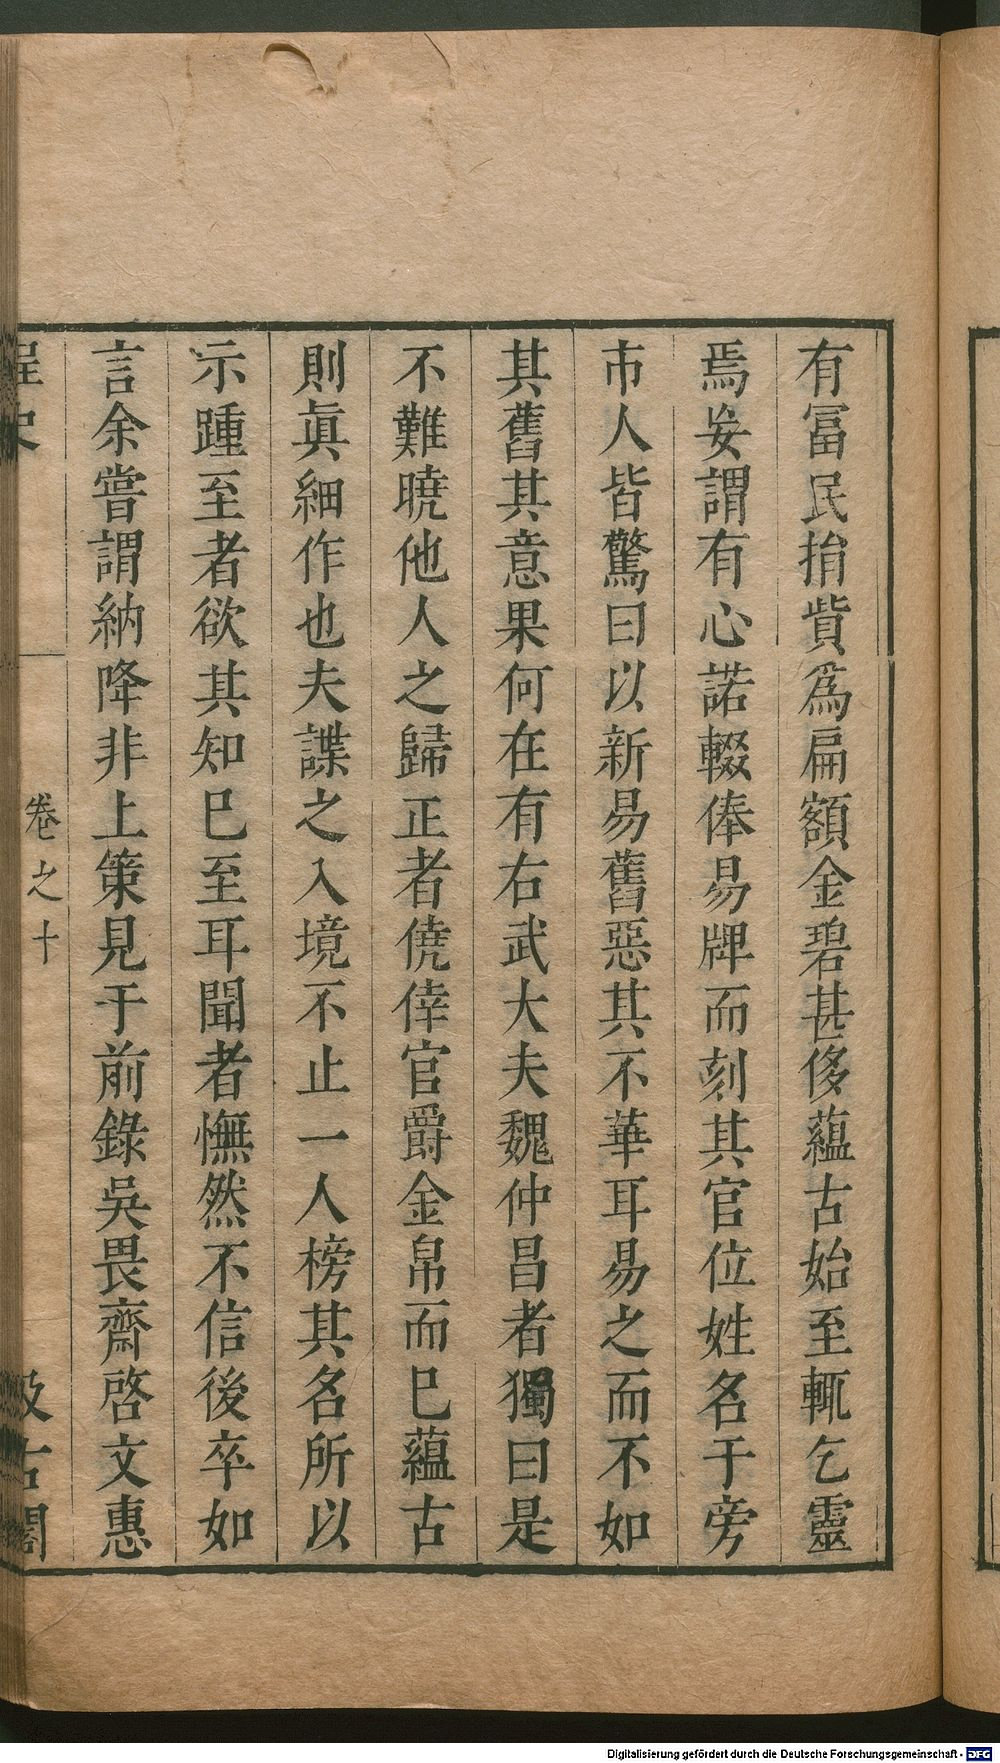 有冨民捐貲爲扁額金碧甚侈蘊古始至輒乞靈
焉妄謂有心諾輟俸易牌而刻其官位姓名于旁
市人皆驚曰以新易舊惡其不華耳易之而不如
其舊其意果何在有右武大夫魏仲昌者獨曰是
不難曉他人之歸正者僥倖官爵金帛而已蘊古
則眞細作也夫諜之入境不止一人榜其名所以
示踵至者欲其知巳至耳聞者憮然不信後卒如
言余嘗謂納降非上策見于前錄吳畏齋啓文惠
桯史
卷之十
汲古閣
Digitalisierung gefördert durch die Deutsche Forschungsgemeinschaft - DFG